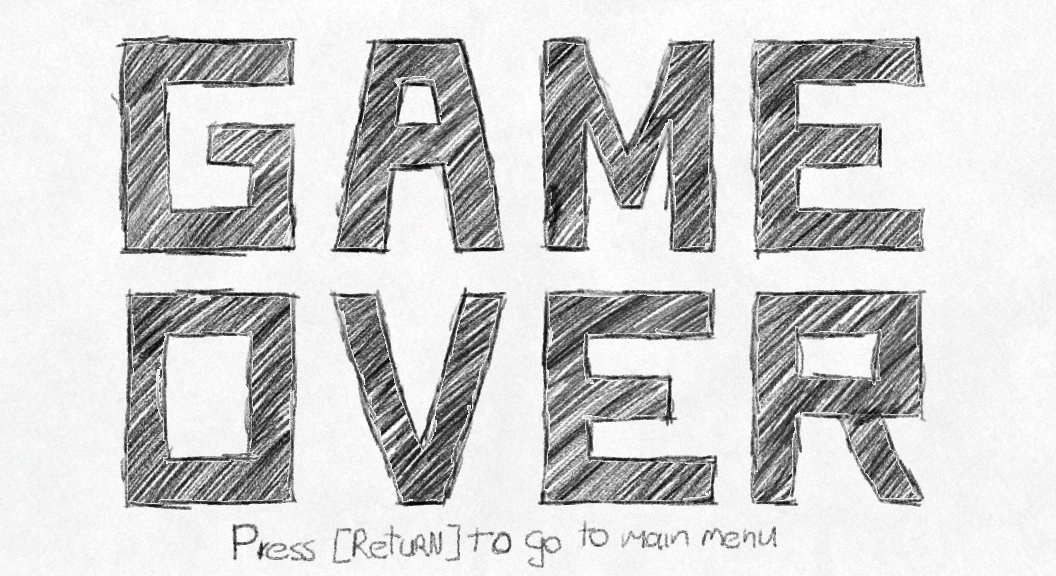 GAME
OVER
Press [Return] to go to main menu